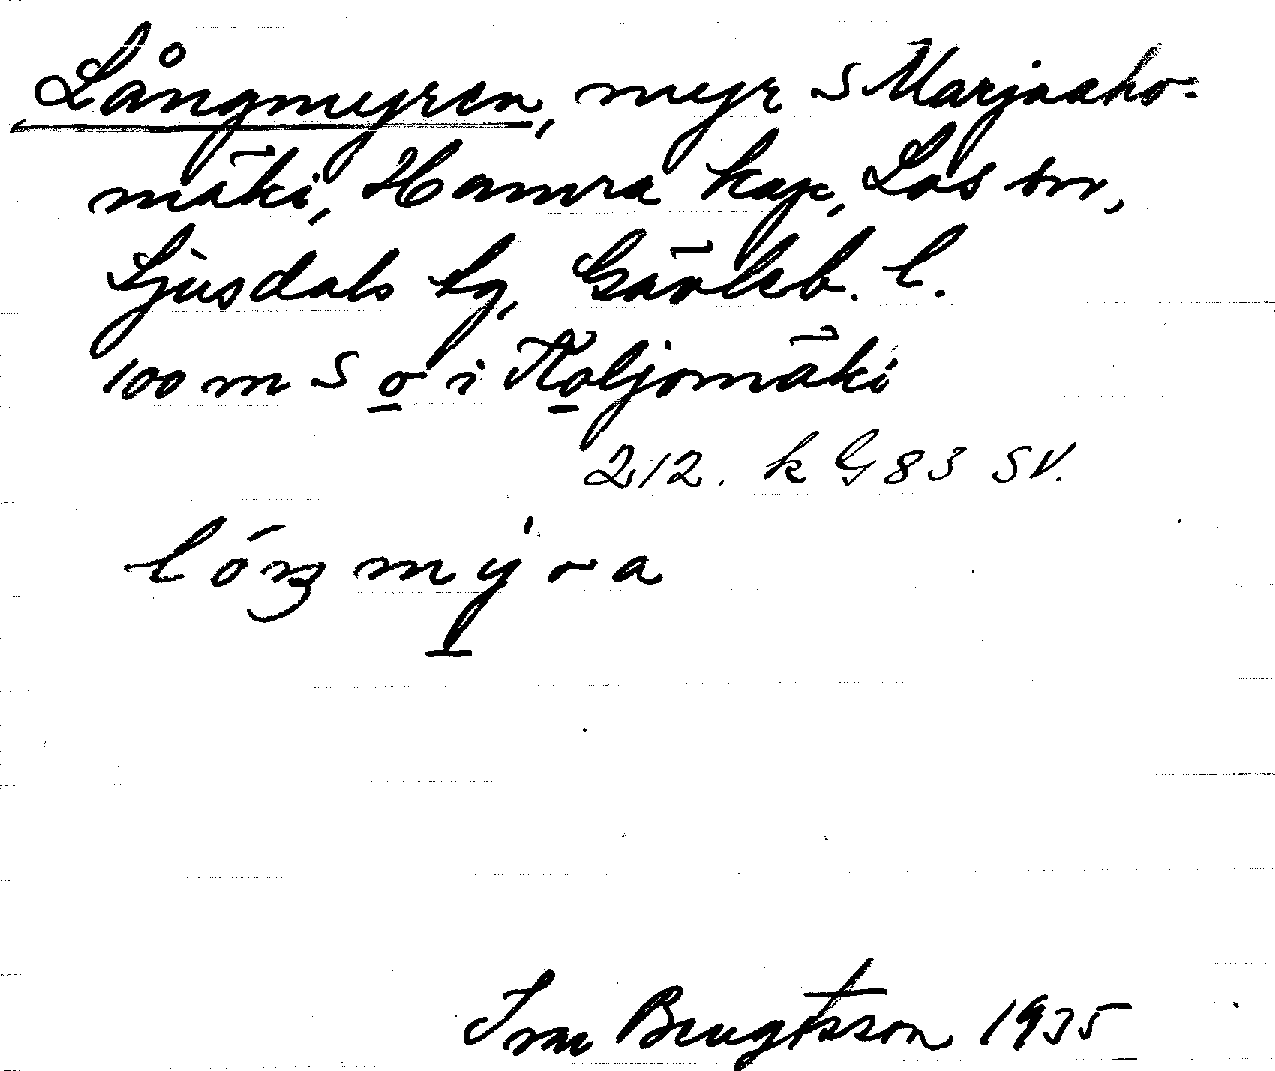 Långmyren, myr S Marjaaho-
mäki, Hamra kap, Los sn,
Ljusdals tg, Gävleb. l.
100 m S o i Koljomäki
212. k G83 SV.
lóŋmýra
Ivar Bengtsson 1935